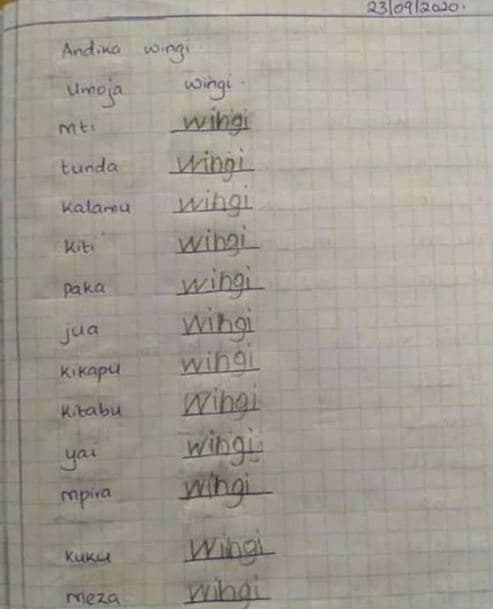 23/09/2020.
Andika wingi.
Umoja wingi.
mti wingi
tunda wingi
Kalamu wingi
Kiti wingi
paka wingi
jua wingi
Kikapu wingi
Kitabu wingi
yai wingi
mpira wingi
Kuku wingi
meza wingi